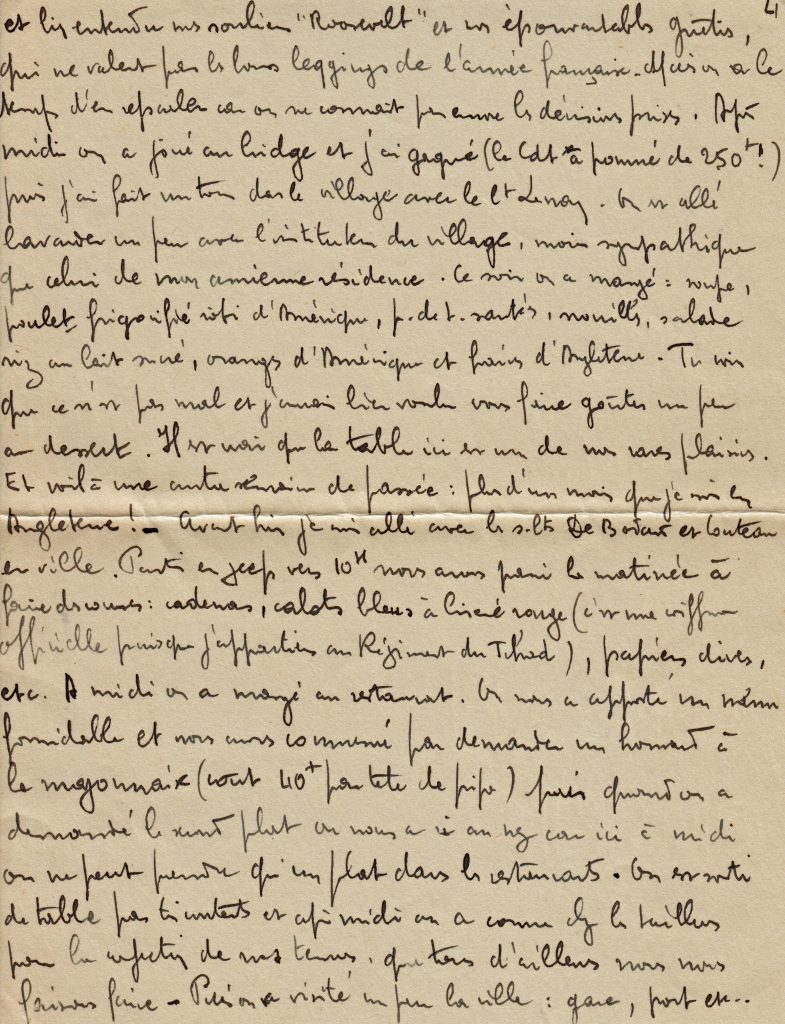 4
et bien entendu nos souliers "Roosevelt" et nos épouvantables guêtres,
qui ne valent pas les bons leggings de l'armée française. Mais on a le
temps d'en reparler car on ne connait pas encore les décisions prises. Après
midi on a joué au bridge et j'ai gagné (le Cdt a paumé de 250 !)
puis j'ai fait un tour dans le village avec le Lt. On est allé
bavarder un peu avec l'instituteur du village, moins sympathique
que celui de mon ancienne résidence. Ce soir on a mangé : soupe,
poulet frigorifié rôti d'Amérique, p. de t. sautés, nouilles, salade
riz au lait sucré, oranges d'Amérique et poires d'Angleterre. Tu vois
que ce n'est pas mal et j'aurais bien voulu vous faire goûter un peu
au dessert. Il est vrai que la table ici est un de nos rares plaisirs.
Et voilà une autre semaine de passée : plus d'un mois que je suis en
Angleterre ! - Avant hier je suis allé avec les s.lts De et
en ville. Partis en jeep vers 10H nous avons passé la matinée à
faire des courses : cadenas, calots bleus à liseré rouge (c'est une coiffure
officielle puisque j'appartiens au Régiment du Tchad), papiers divers,
etc. A midi on a mangé au restaurant. On nous a apporté un menu
formidable et nous avons commencé par demander un homard à
la mayonnaise (cout 40 par tete de pipe) puis quand on a
demandé le second plat on nous a ri au nez car ici à midi
on ne peut prendre qu'un plat dans les restaurants. On est sorti
de table pas très contents et après midi on a couru chez les tailleurs
pour la confection de nos tenues. que tous d'ailleurs nous nous
faisons faire - Puis on a visité un peu la ville : gare, port etc..